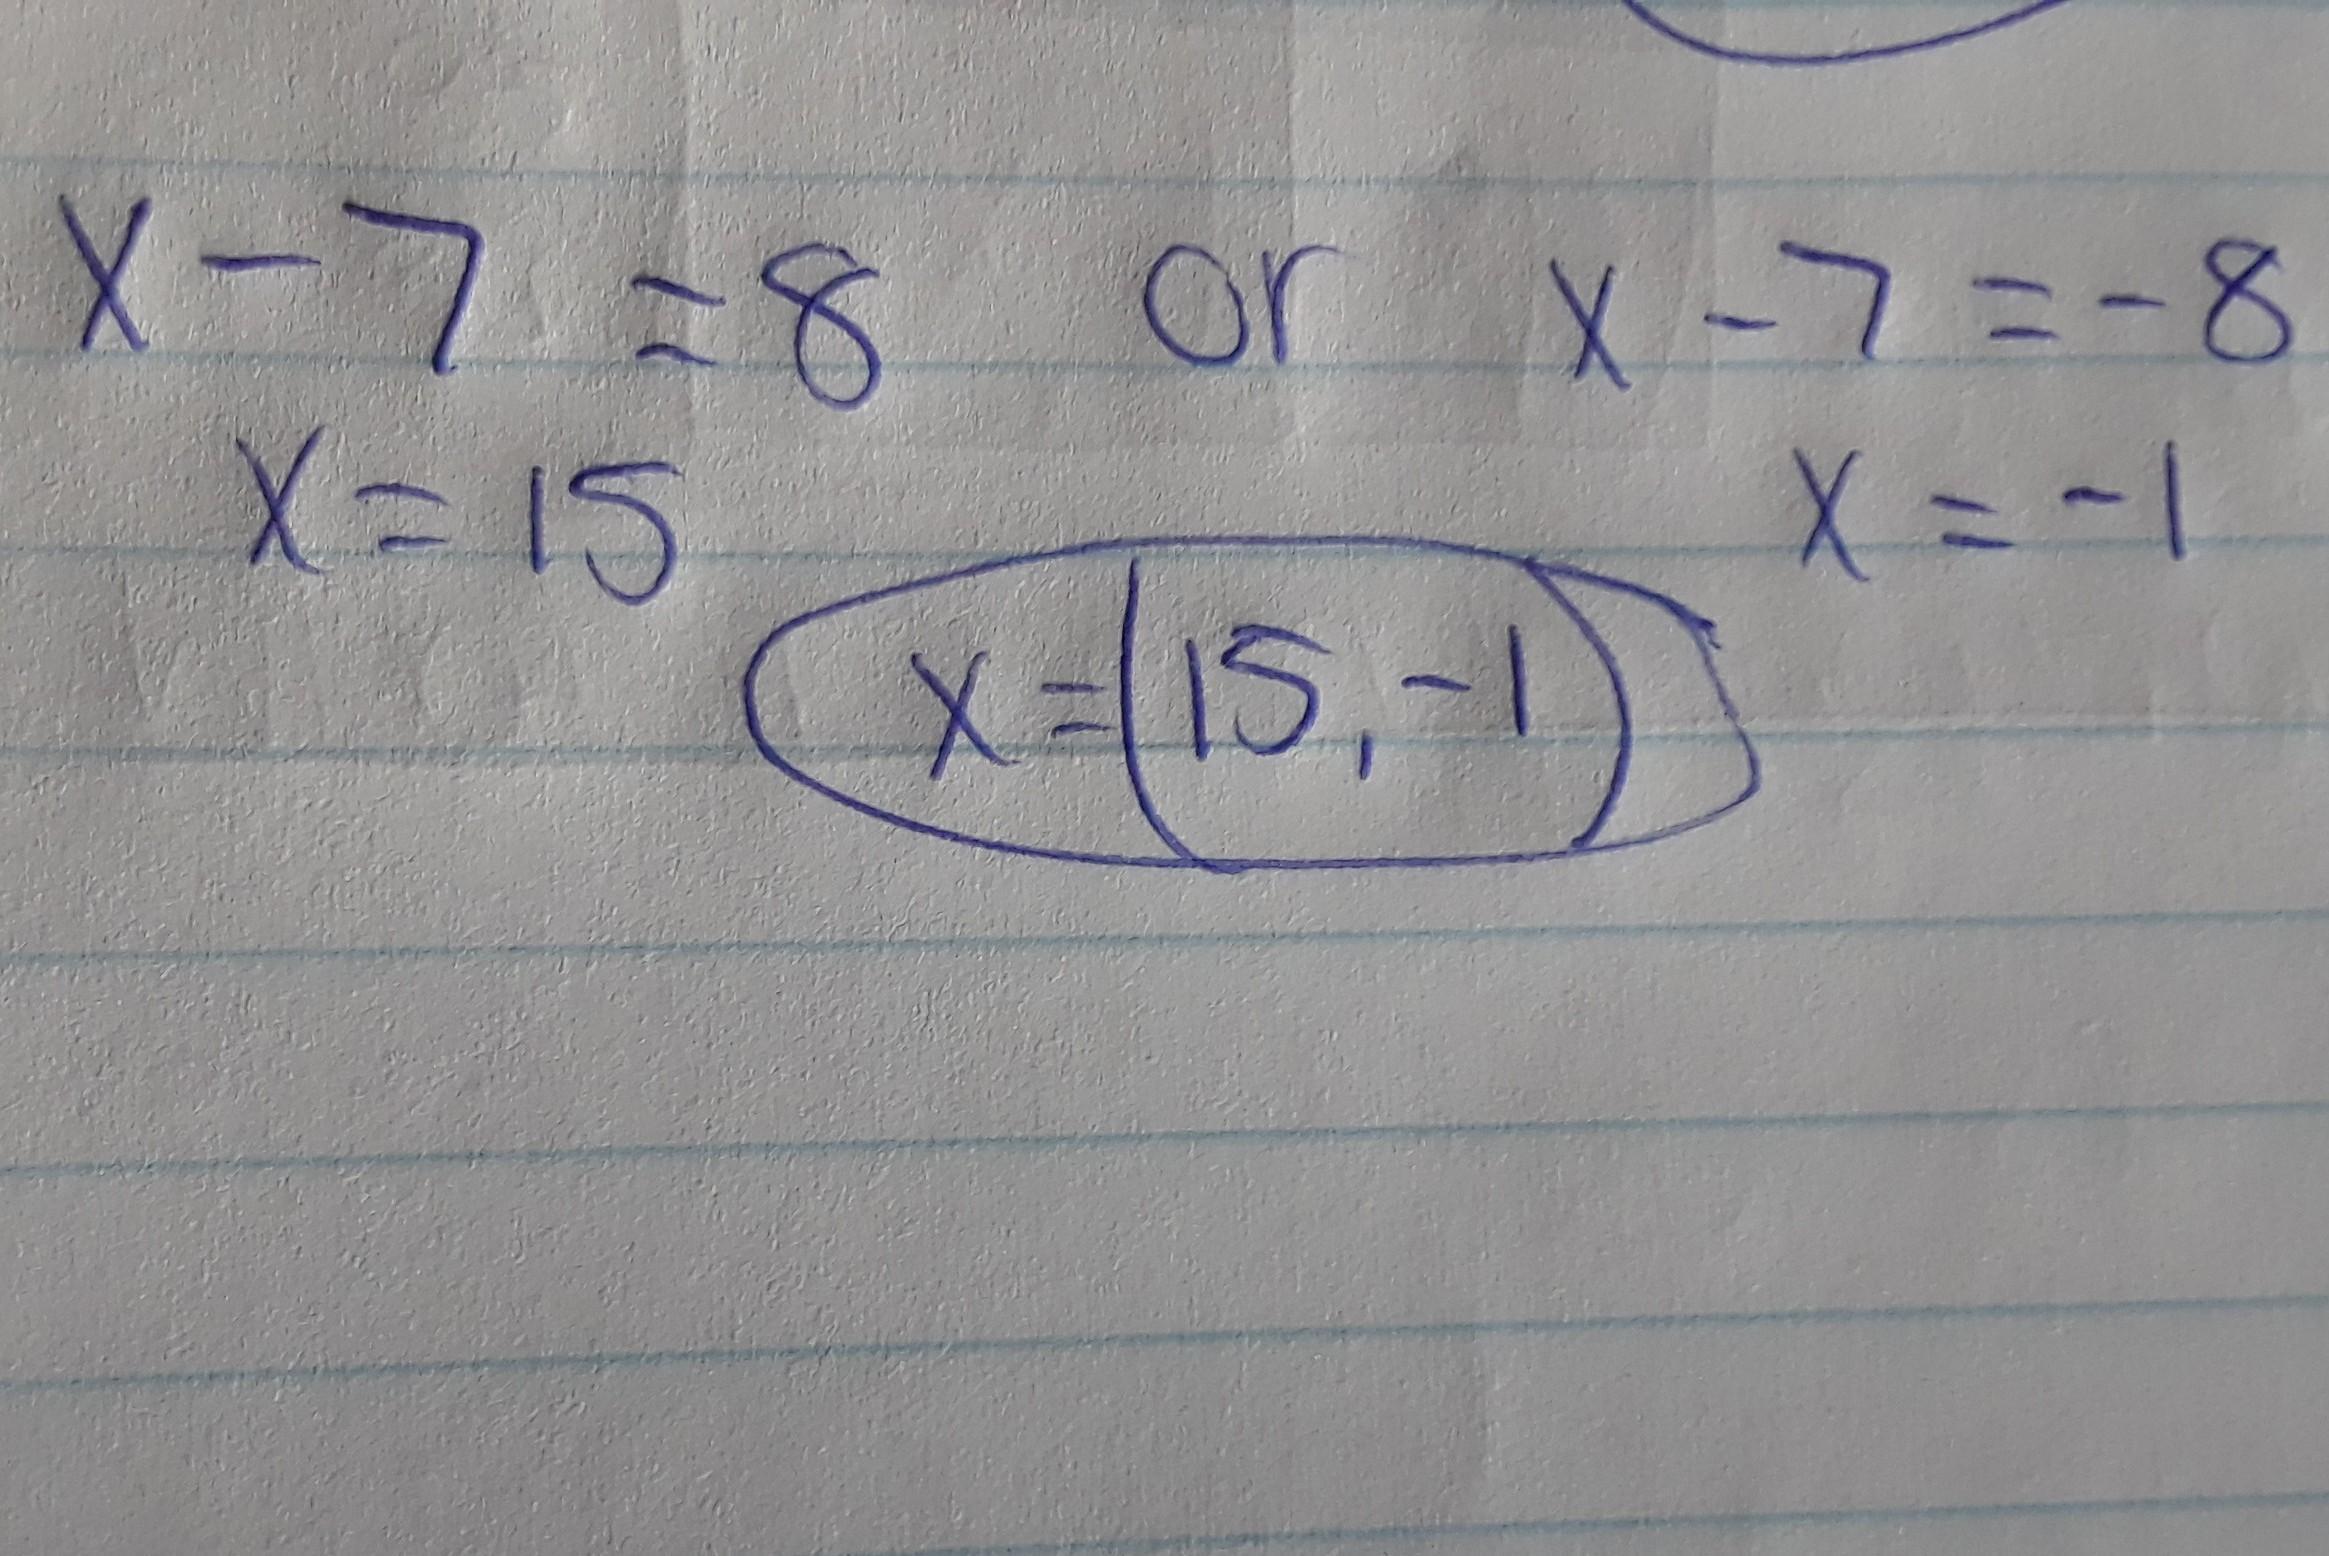 x - 7 = 8 or x - 7 = - 8
x = 15 x = - 1
x = (15, - 1)